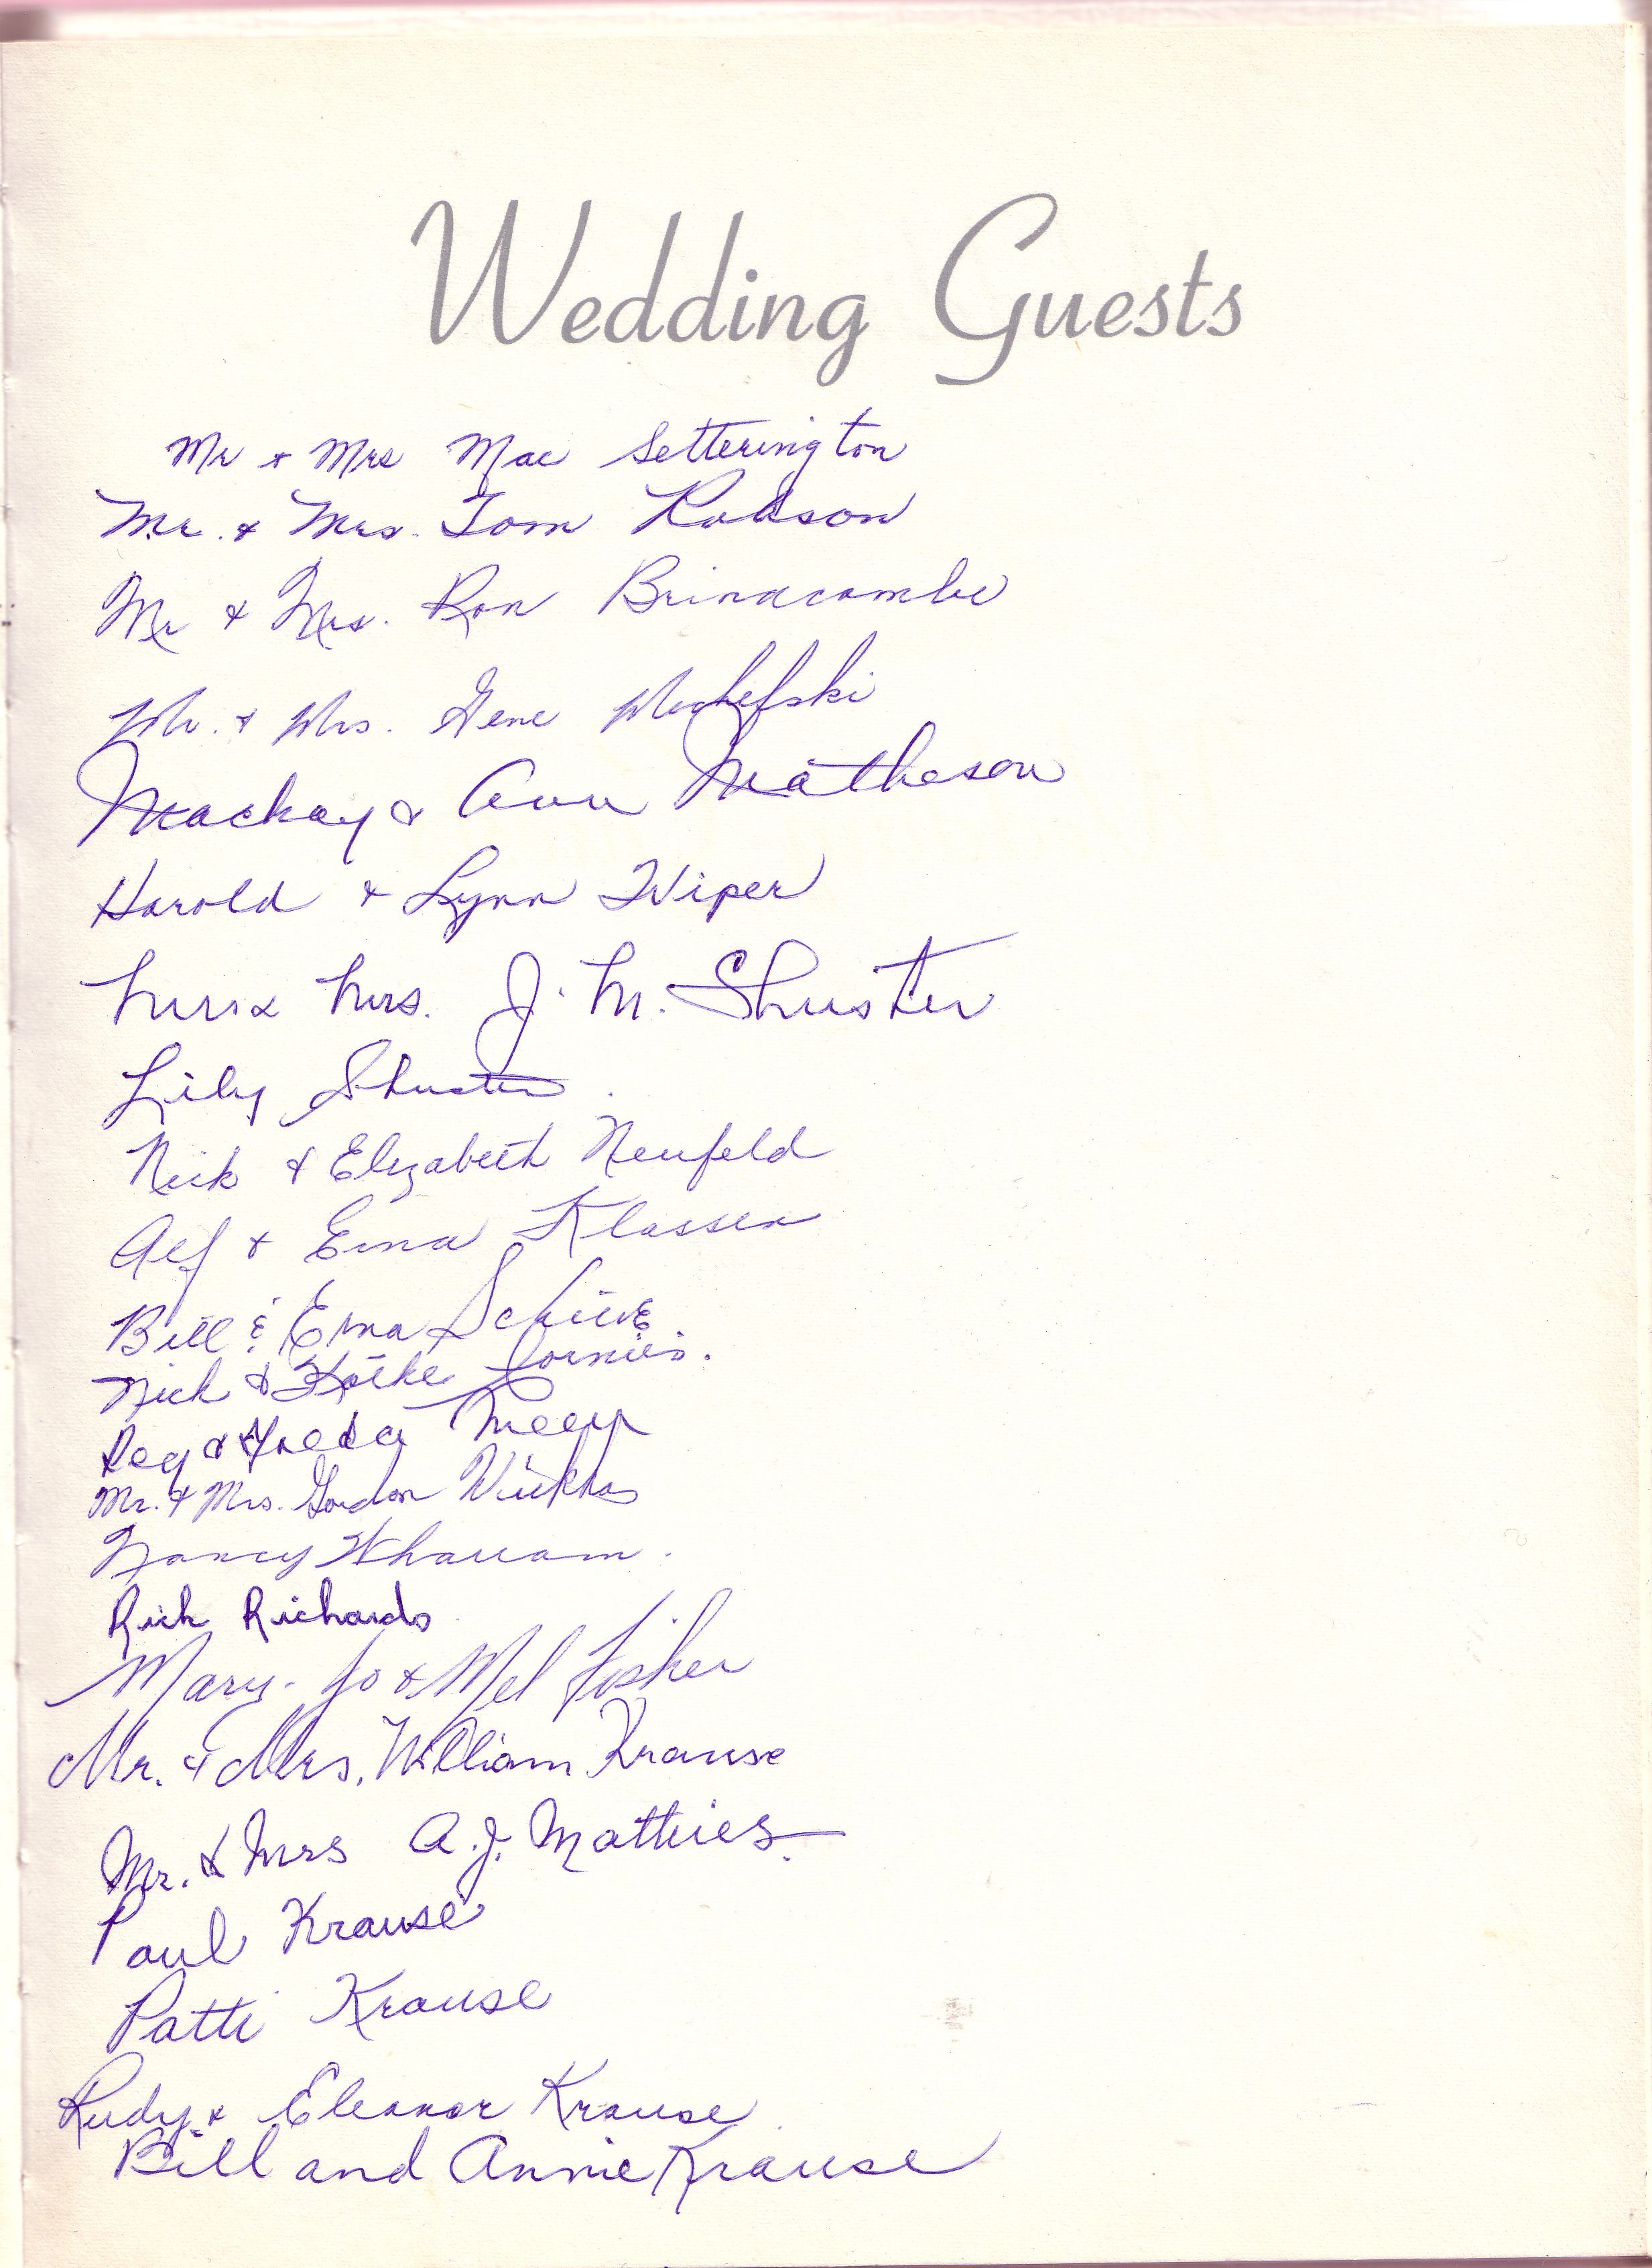 Wedding Guests
Mr & Mrs Mac Setterington
Mr. & Mrs. Tom Robson
Mr & Mrs. Ron Brinacombe
Mr. & Mrs. Gene
Mackay & Ann Matheson
Harold & Lynn Wiper
Mr & Mrs. J. M. Shuster
Lily Shuster
Nick & Elizabeth Neufeld
Alf & Erna Klassen
Bill & Erna
Nick &
Reg &
Mr. & Mrs. Gordon
Nancy Wharram.
Rick Richards
Mary-Jo & Mel Fisher
Mr. & Mrs. William Krause
Mr. & Mrs A.J. Matthies.
Paul Krause
Patti Krause
Rudy & Eleanor Krause
Bill and Annie Krause